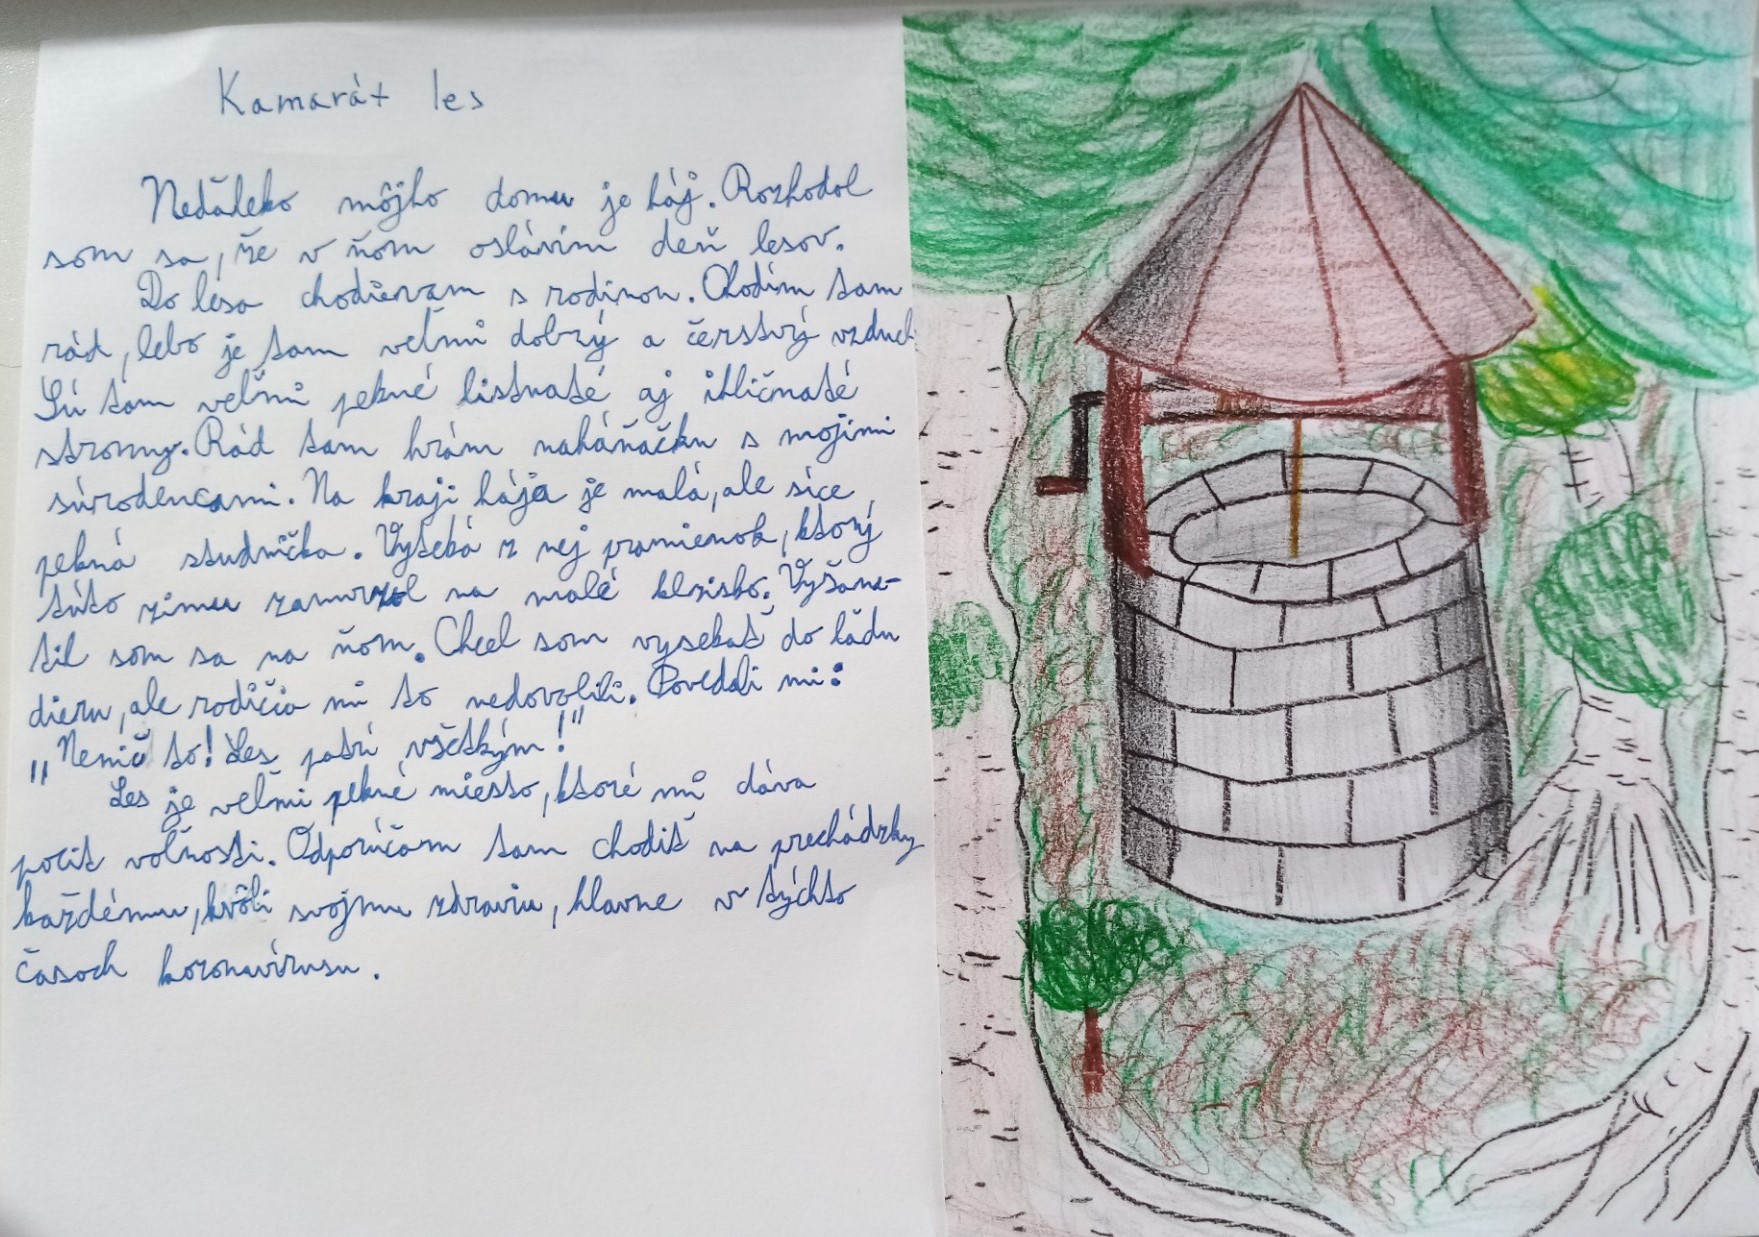 Kamarát les
Neďaleko môjho domu je háj. Rozhodol
som sa, že v ňom oslávim deň lesov.
Do lesa chodievam s rodinou. Chodím tam
rád, lebo je tam veľmi dobrý a čerstvý vzduch
Sú tam veľmi pekné listnaté aj ihličnaté
stromy. Rád tam hrám naháňačku s mojimi
súrodencami. Na kraji hája je malá, ale síce
pekná studnička. Vyteká z nej pramienok, ktorý
túto zimu zamrzol na malé klzisko. Vyšan-
til som sa na ňom. Chcel som vysekať do ľadu
dieru, ale rodičia mi to nedovolili. Povedali mi:
„Nenič to! Les patrí všetkým!"
Les je veľmi pekné miesto, ktoré mi dáva
pocit voľnosti. Odporúčam tam chodiť na prechádzky
každému, kvôli svojmu zdraviu, hlavne v týchto
časoch koronavírusu.